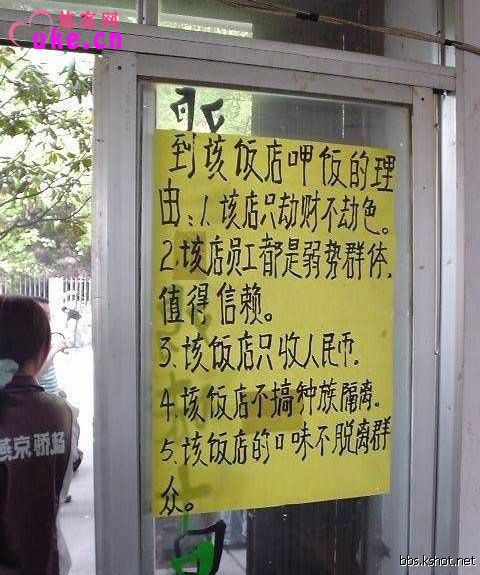 旅客网
uke.cn
到该饭店呷饭的理
由:1.该店只劫财不劫色。
2.该店员工都是弱势群体,
值得信赖。
3.该饭店只收人民币.
4.该饭店不搞种族隔离。
5.该饭店的口味不脱离群
众。
燕京骄杨
bbs.kshot.net